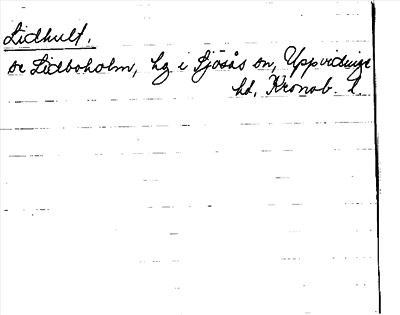 Lidhult.
se Lidboholm, hg i Sjösås sn, Uppvidinge
hd, Kronob. l.